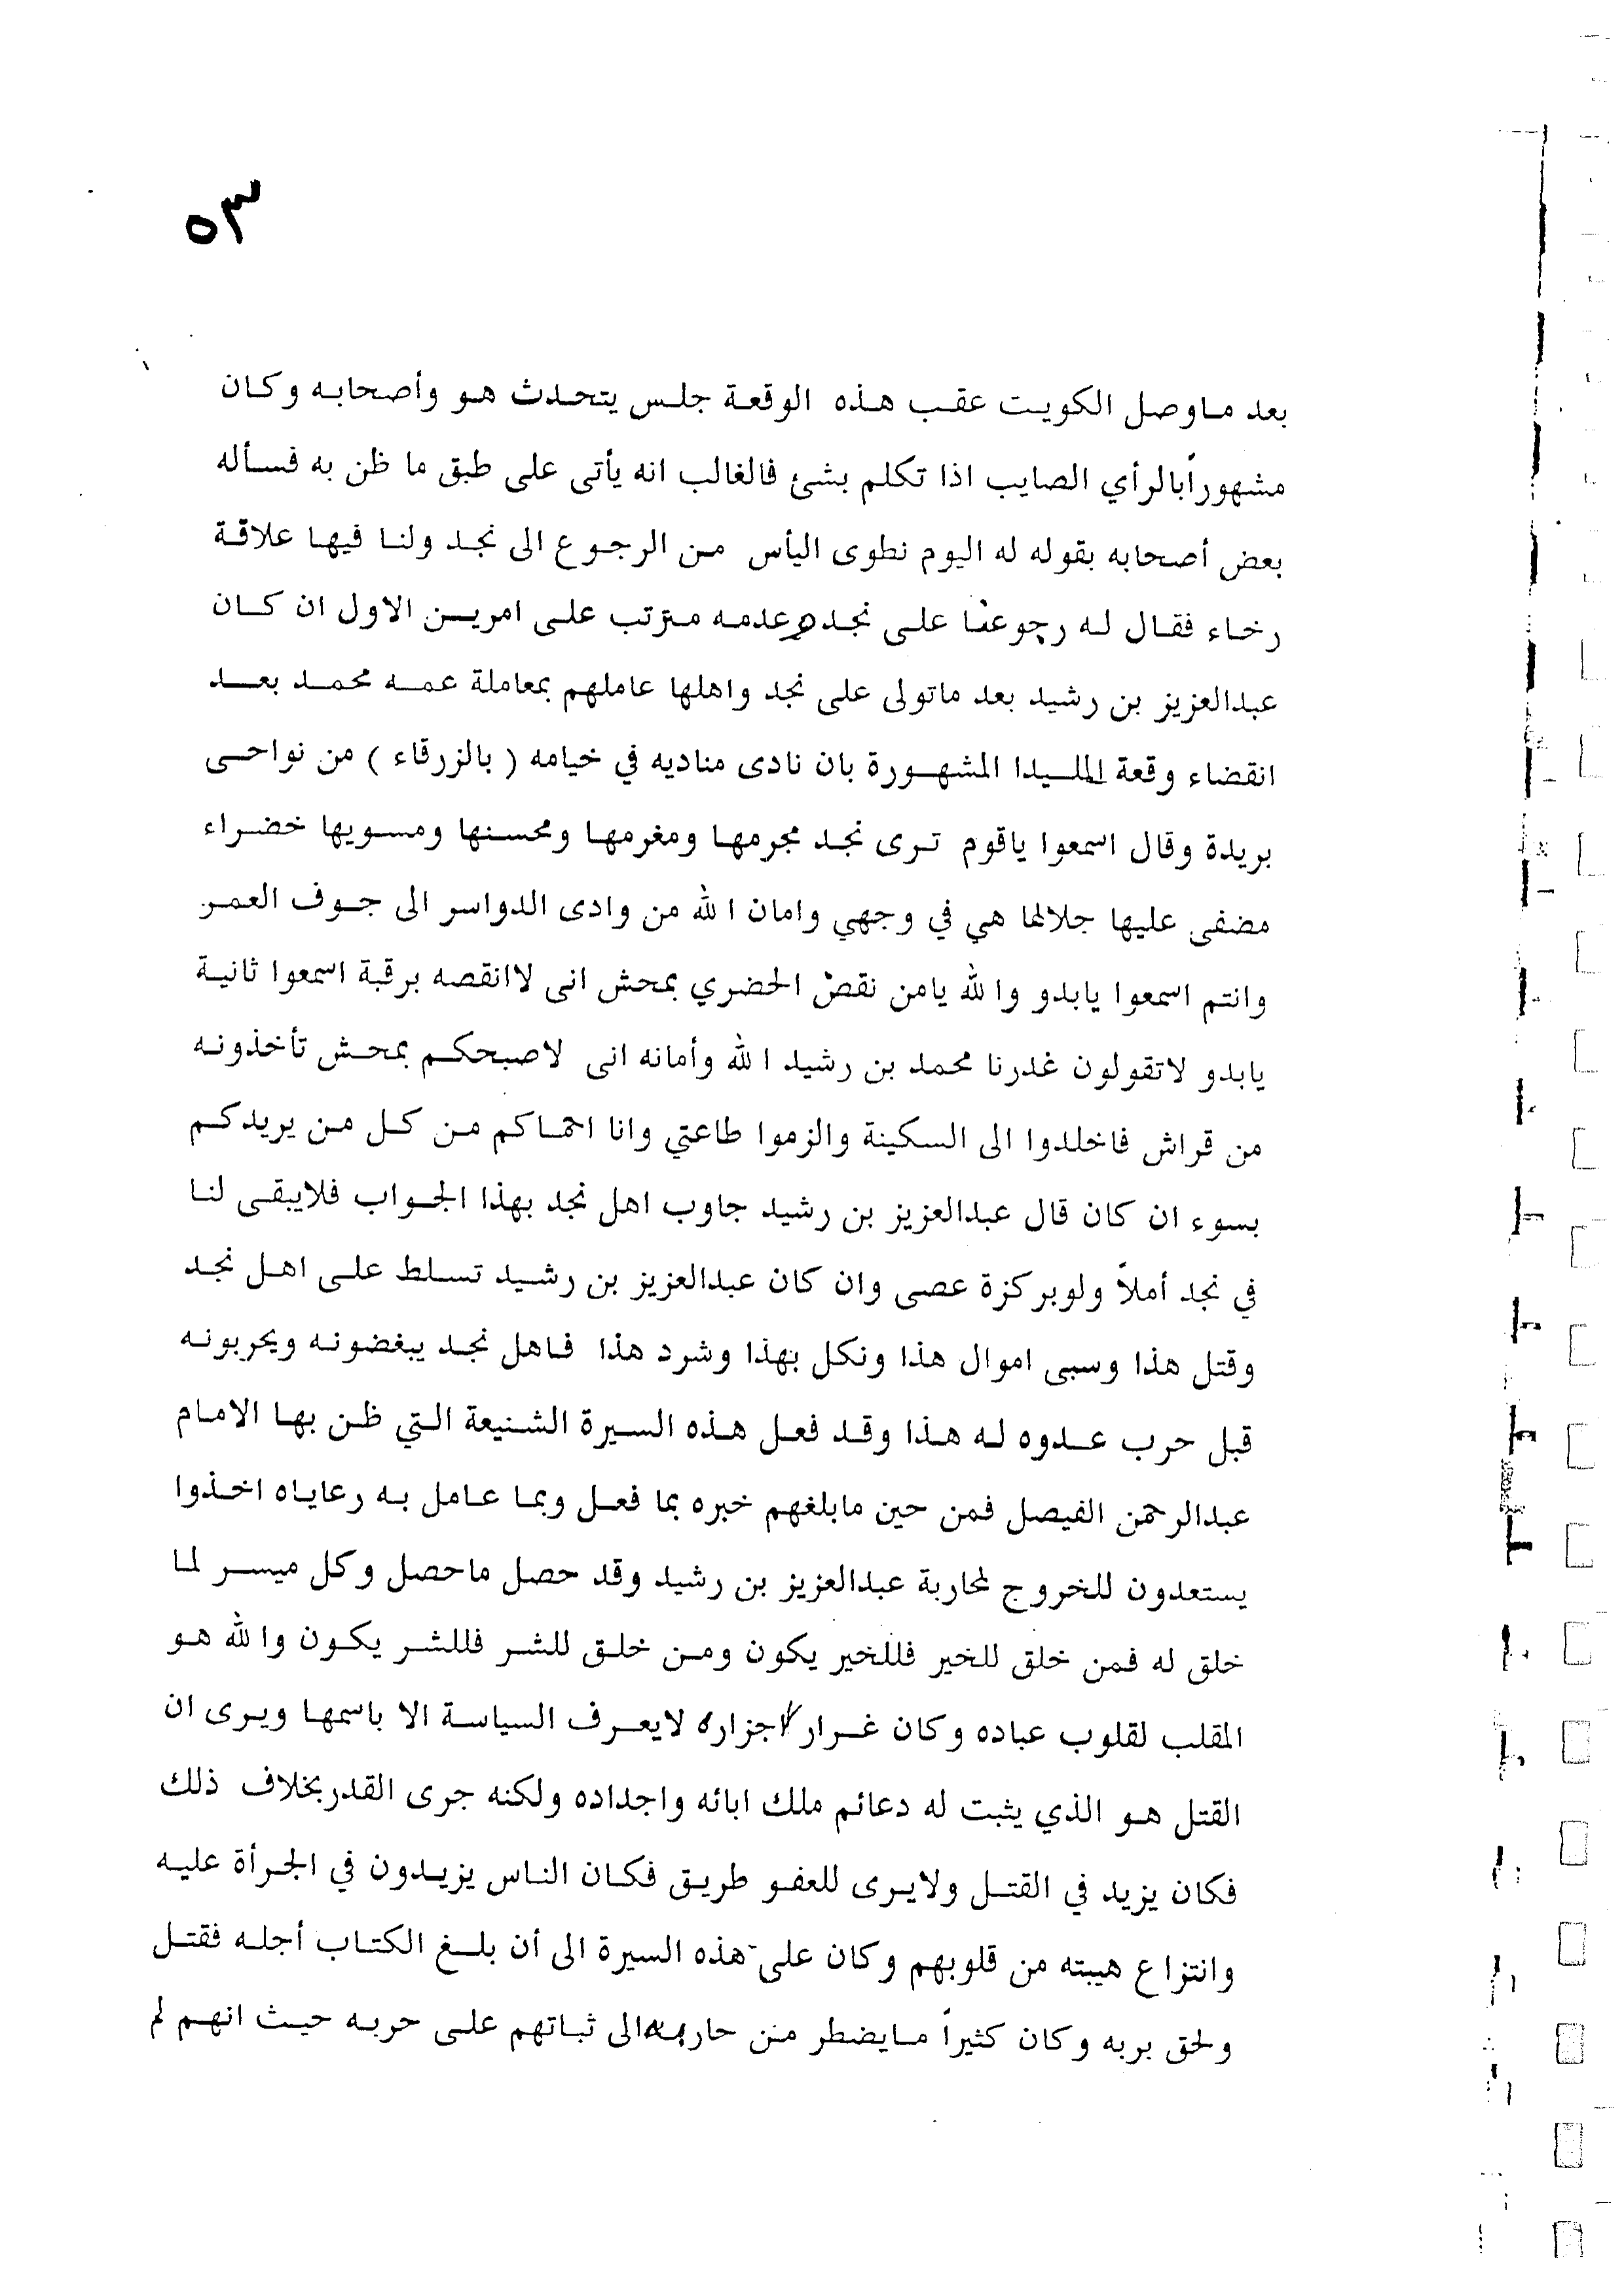 ٥٣
بعد ماوصل الكويت عقب هذه الوقعة جلس يتحدث هو وأصحابه وكان
مشهوراً بالرأي الصايب اذا تكلم بشئ فالغالب انه يأتى على طبق ما ظن به فسأله
بعض أصحابه بقوله له اليوم نطوى اليأس من الرجوع الى نجد ولنا فيها علاقة
رخاء فقال له رجوعنا على نجد وعدمه مترتب على امرين الاول ان كان
عبدالعزيز بن رشيد بعد ماتولى على نجد واهلها عاملهم بمعاملة عمه محمد بعد
انقضاء وقعة المليدا المشهورة بان نادى مناديه في خيامه ( بالزرقاء ) من نواحى
بريدة وقال اسمعوا ياقوم ترى نجد مجرمها ومغرمها ومحسنها ومسويها خضراء
مضفى عليها جلالها هي في وجهي وامان الله من وادى الدواسر الى جوف العمر
وانتم اسمعوا يابدو والله يامن نقص الحضري بمحش انى لاانقصه برقبة اسمعوا ثانية
يابدو لاتقولون غدرنا محمد بن رشيد الله وأمانه انى لاصبحكم بمحش تأخذونه
من قراش فاخلدوا الى السكينة والزموا طاعتي وانا احماكم من كل من يريدكم
بسوء ان كان قال عبدالعزيز بن رشيد جاوب اهل نجد بهذا الجواب فلايبقى لنا
في نجد أملاً ولوبركزة عصى وان كان عبدالعزيز بن رشيد تسلط على اهل نجد
وقتل هذا وسبى اموال هذا ونكل بهذا وشرد هذا فاهل نجد يبغضونه ويحربونه
قبل حرب عدوه له هذا وقد فعل هذه السيرة الشنيعة التي ظن بها الامام
عبدالرحمن الفيصل فمن حين مابلغهم خبره بما فعل وبما عامل به رعاياه اخذوا
يستعدون للخروج لمحاربة عبدالعزيز بن رشيد وقد حصل ماحصل وكل ميسر لما
خلق له فمن خلق للخير فللخير يكون ومن خلق للشر فللشر يكون والله هو
المقلب لقلوب عباده وكان غرار اجزاره لايعرف السياسة الا باسمها ويرى ان
القتل هو الذي يثبت له دعائم ملك ابائه واجداده ولكنه جرى القدربخلاف ذلك
فكان يزيد في القتل ولايرى للعفو طريق فكان الناس يزيدون في الجرأة عليه
وانتزاع هيبته من قلوبهم وكان على هذه السيرة الى أن بلغ الكتاب أجله فقتل
ولحق بربه وكان كثيراً مايضطر من حاربه الى ثباتهم على حربه حيث انهم لم